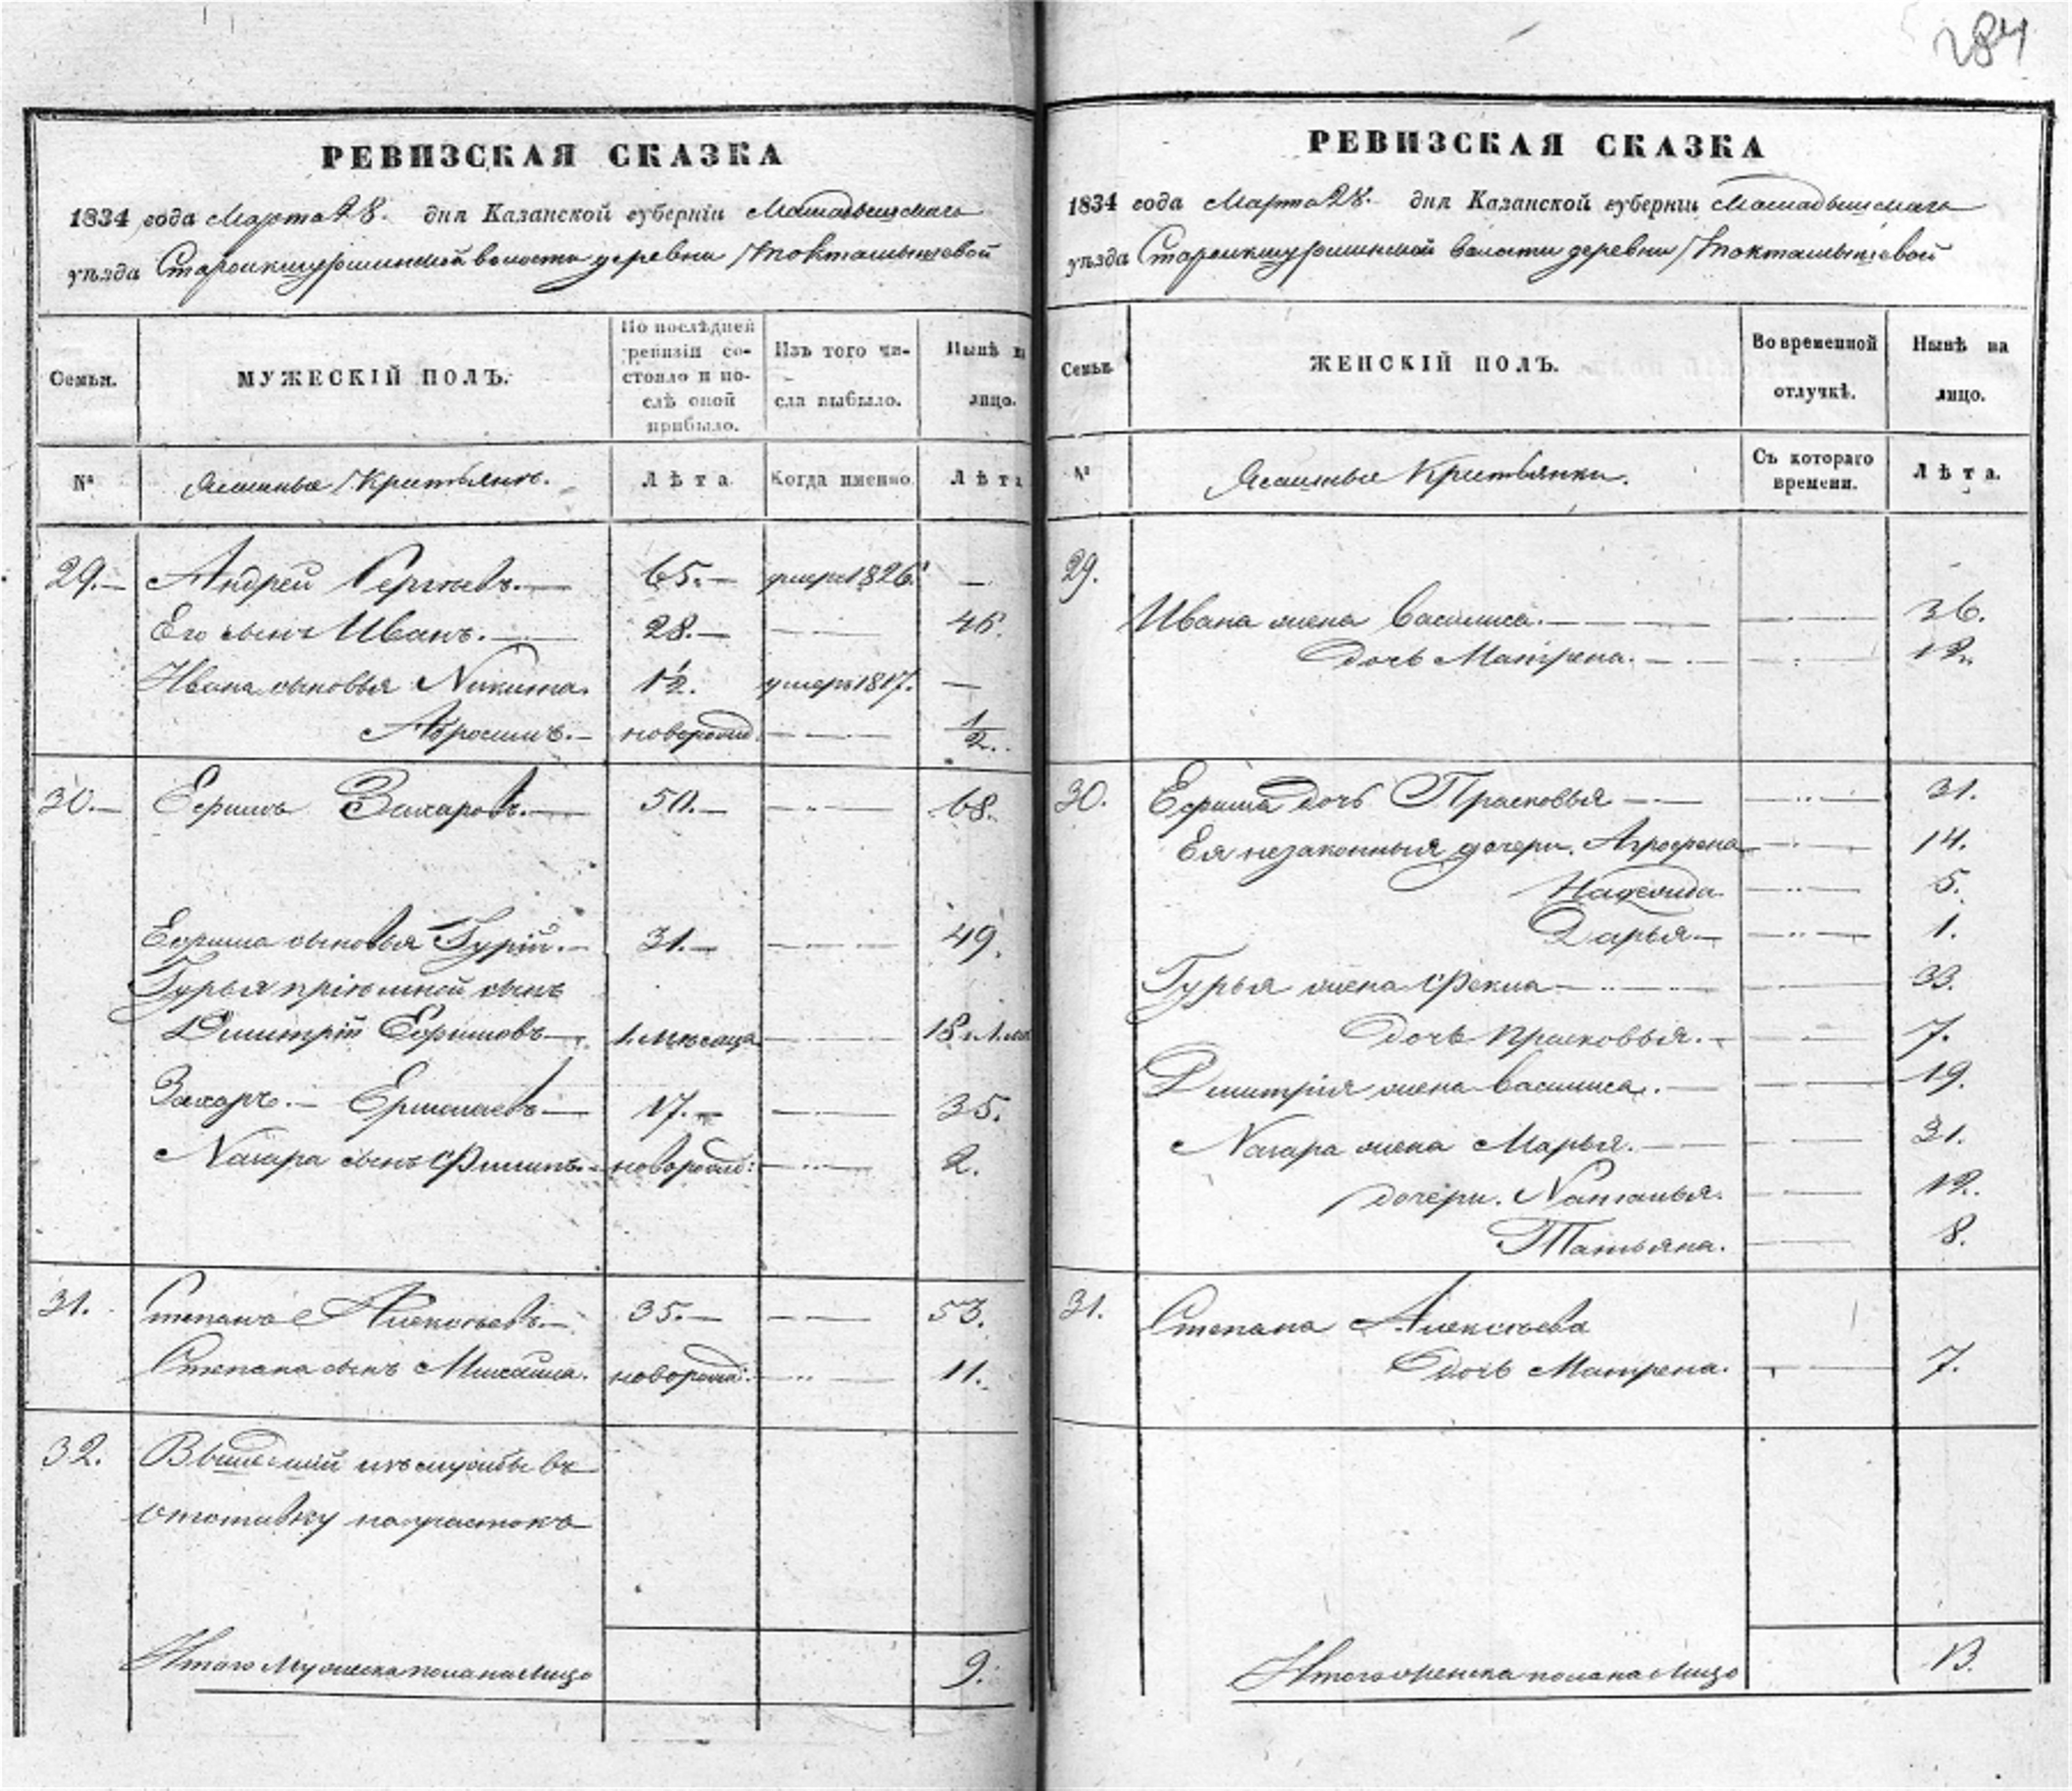 284
РЕВИЗСКАЯ СКАЗКА
1834 года Марта 28. дня Казанской губерніи Мамадышскаго
уѣзда волости деревни
Семьи.
МУЖЕСКІЙ ПОЛЪ.
По послѣдней ревизіи со-
стояло и по-
слѣ оной
прибыло.
Изъ того чи-
сла выбыло.
Нынѣ н
лицо.
№
Ясашные Крестьяне.
Лѣта
Когда именно
Лѣта
29. Андрей Сергѣевъ. 65. умеръ 1826.
Его сынъ Иванъ. 28. 46.
Ивана сыновья Никита. 1½. умеръ 1817.
Абросимъ. новорожд. 1/2.
30. Ефимъ Захаровъ. 50. 68.
Ефима сыновья Гурій. 31. 49.
Гурья пріемной сынъ
Дмитрій Ефимовъ 1. мѣсяца 18 и 1. м
Захаръ. Ермолаевъ 17. 35.
сынъ Филипъ. новорожд: 2.
31. Степанъ Алексѣевъ. 35. 53.
Степана сынъ Михайла. новорожд: 11.
32. Вышедшій изъ службы въ
отставку на участокъ
Итого мужеска пола на лицо 9.
РЕВИЗСКАЯ СКАЗКА
1834 года Марта 28. дня Казанской губерніи Мамадышскаго
уѣзда волости деревни
Семьи.
ЖЕНСКІЙ ПОЛЪ.
Во временной
отлучкѣ.
Нынѣ на
лицо.
№
Ясашные Крестьянки.
Съ котораго
времени.
Лѣта.
29.
Ивана жена Василиса. 36.
Дочь Матрена. 12.
30. Ефима дочь Прасковья 31.
Ея незаконныя дочери. Агрофена 14.
Надежда 5.
Дарья 1.
Гурья жена Фекла 33.
Дочь Прасковья. 7.
Дмитрія жена Василиса. 19.
жена Марья. 31.
дочери. Наталья. 12.
Татьяна. 8.
31. Степана Алексѣева
Дочь Матрена. 7.
Итого женска пола на лицо 13.